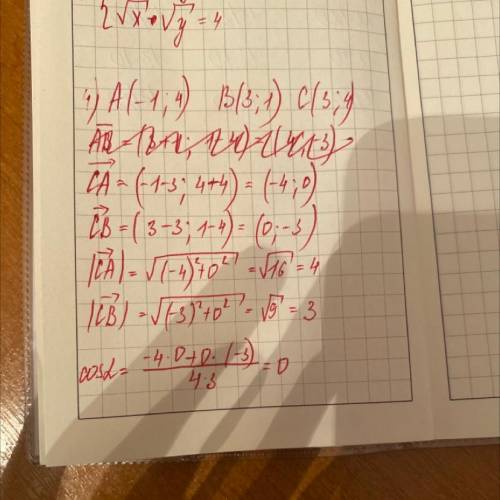 { √x • √y = 4
4) A(-1; 4) B(3; 1) C(3; 4)
CA⃗ = (-1-3; 4+4) = (-4; 0)
CB⃗ = (3-3; 1-4) = (0; -3)
|CA⃗| = √((-4)²+0²) = √16 = 4
|CB⃗| = √((-3)²+0²) = √9 = 3
cosα = (-4·0+0·(-3))/(4·3) = 0